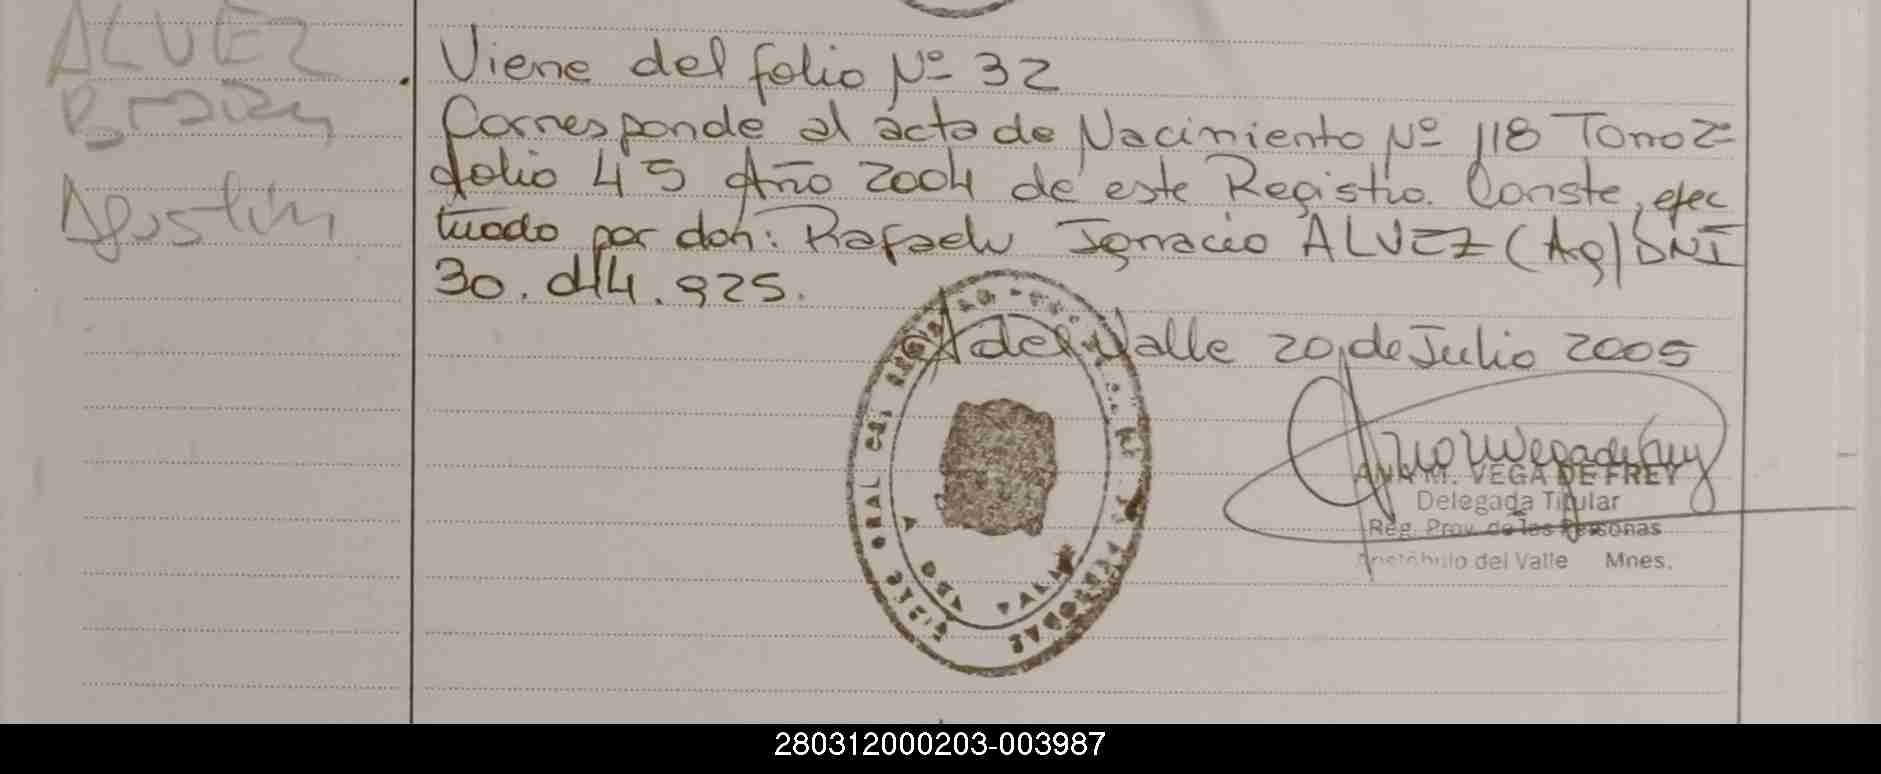 ALVEZ
Brian
Agustin
Viene del folio Nº 32
Corresponde al acta de Nacimiento Nº 118 Tomo 2º
folio 45 Año 2004 de este Registro. Conste, efec
tuado por don: Rafael Ignacio ALVEZ (Ag) DNI
30. 414. 925.
A del Valle 20 de Julio 2005
ANA M. VEGA DE FREY
Delegada Titular
Reg. Prov. de las Personas
Aristóbulo del Valle Mnes.
280312000203-003987